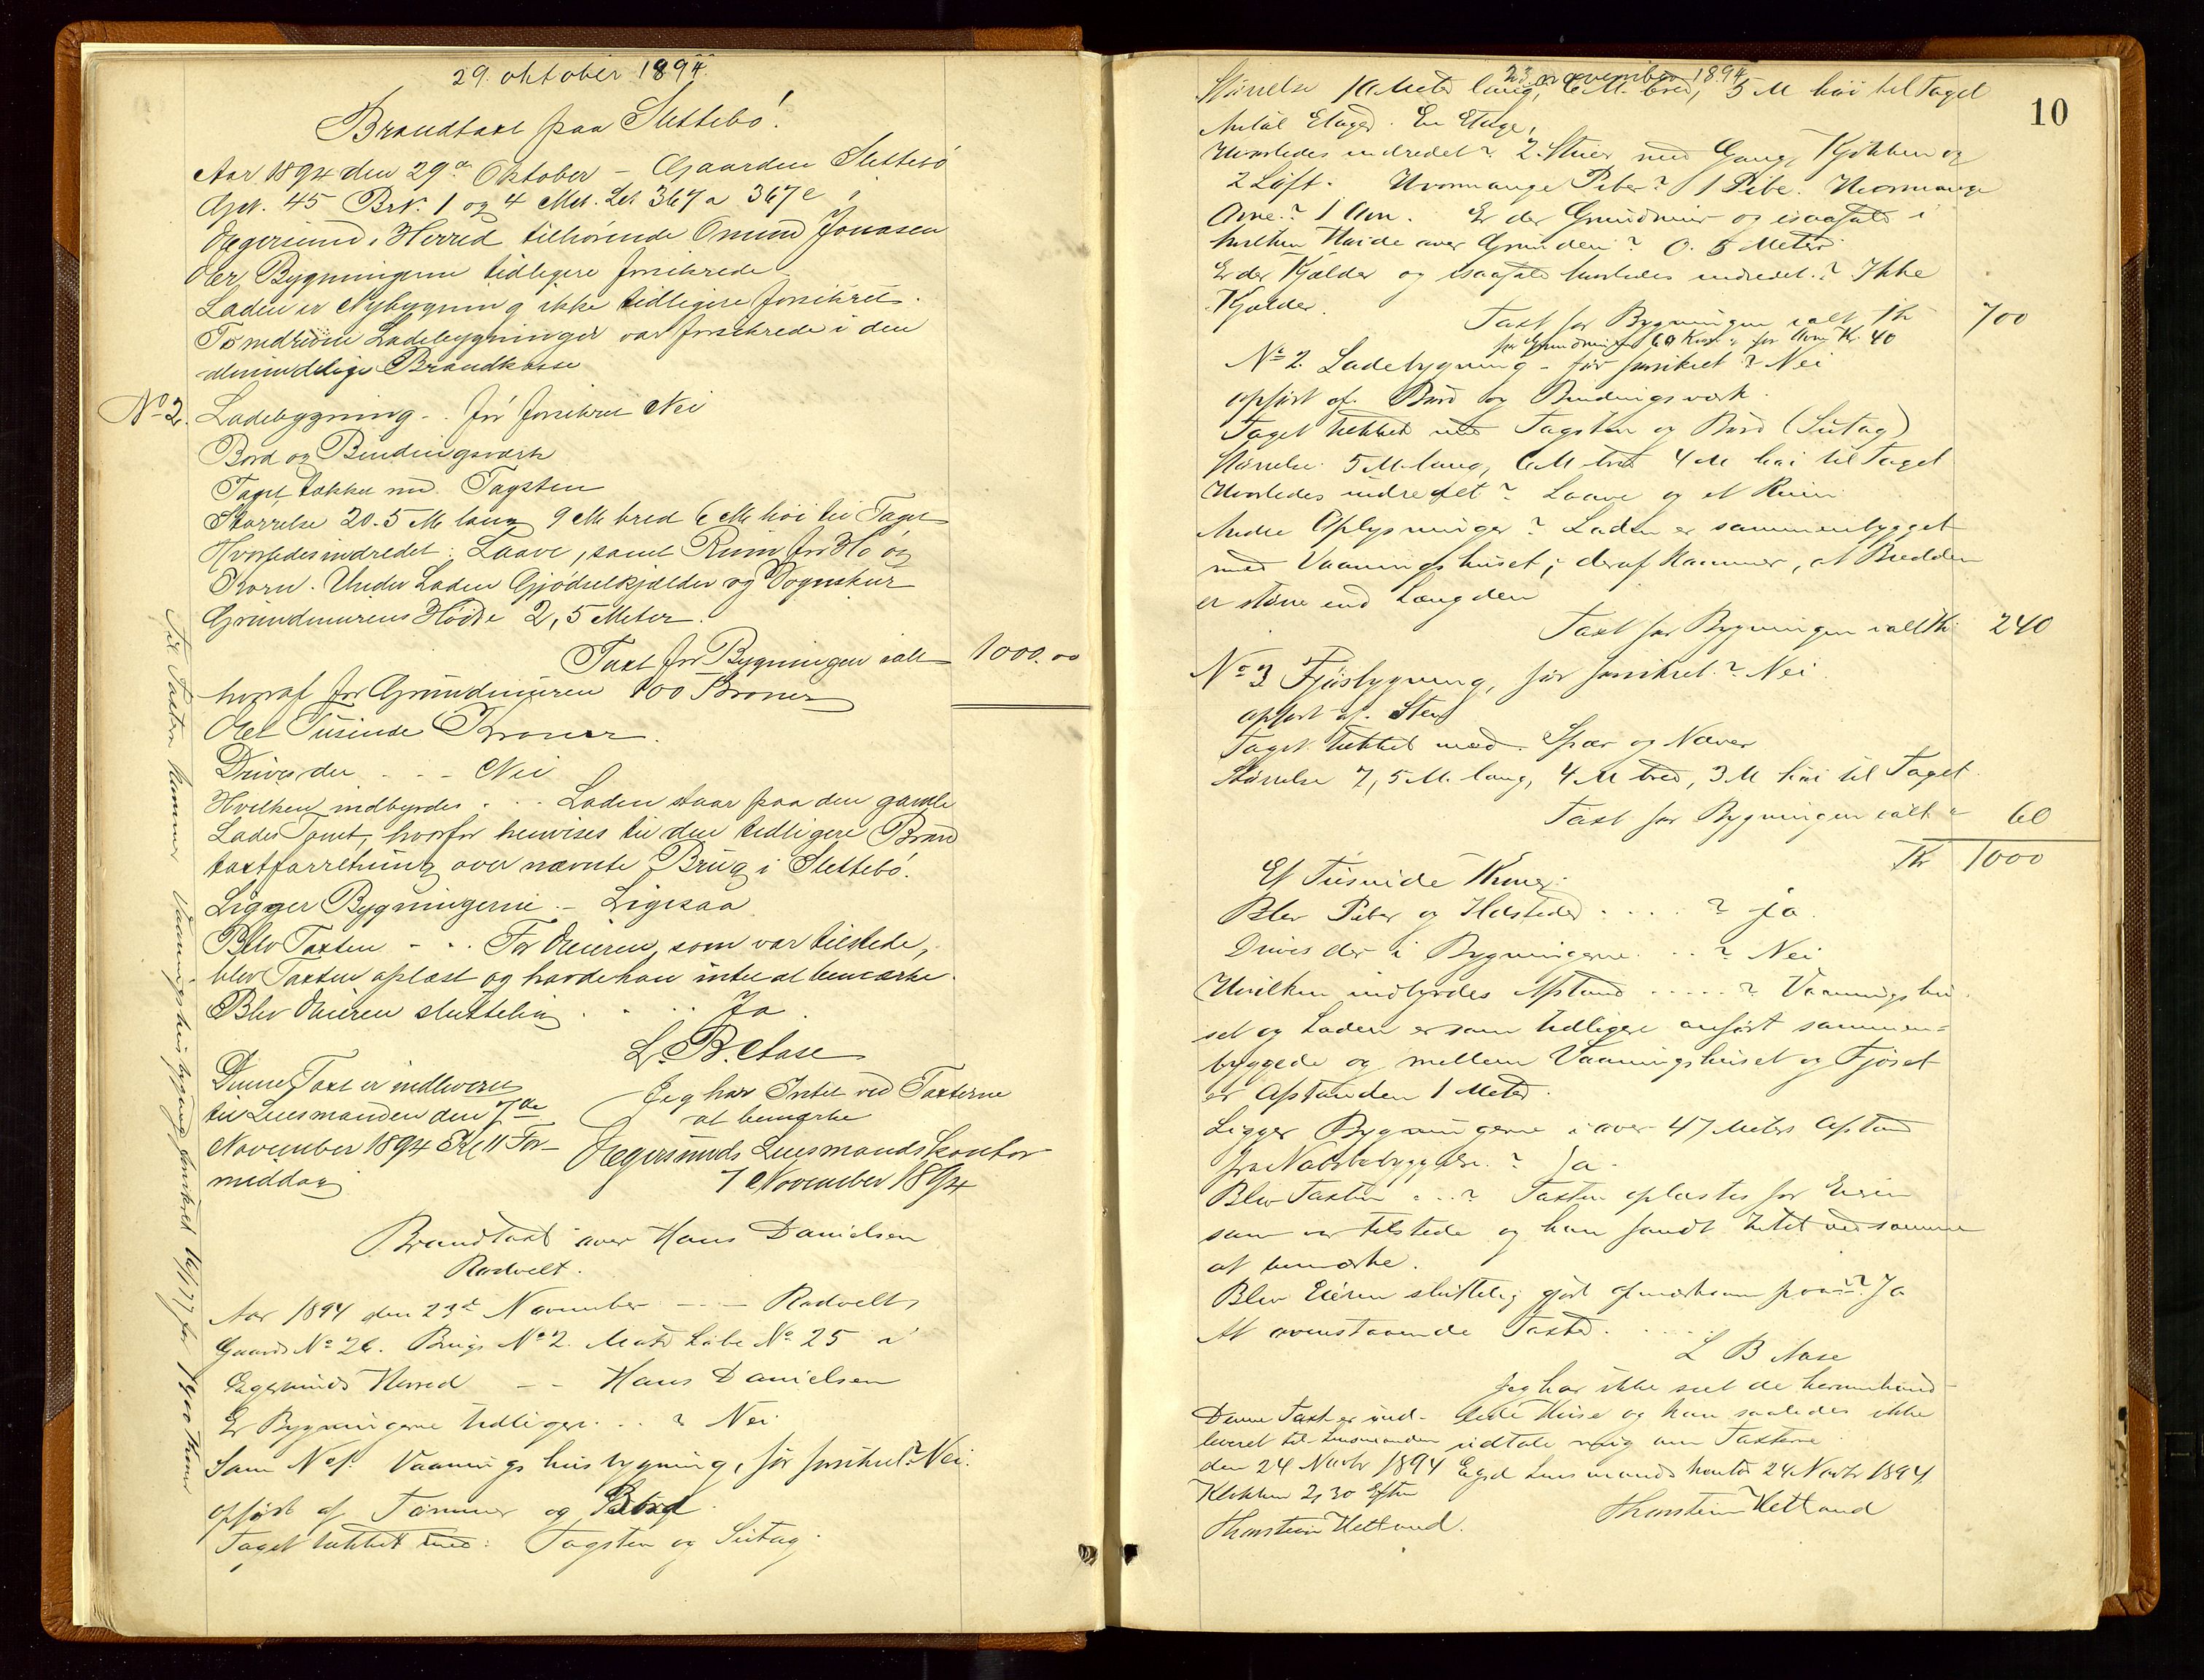 29. oktober 1894.
Brandtaxt paa Slettebö.
Aar 1894 den 29de Oktober – Gaarden Slettebö
Gr. 45 Brk. 1 og 4 Mat. Lit 367a 367c i
Egersunds Herred tilhørende Omund Jonasen
Er Bygningerne tidligere forsikrede
Laden er Nybygning ikke tidligere forsikret.
To nedrevne Ladebygninger var forsikrede i den
almindelige Brandkasse
No 2. Ladebygning - . før forsikret Nei
Bord og Bindingsværk
Taget tækket med. Tagsten
Størrelse 20.5 M lang 9 M bred 6 M høi til Taget
Hvorledes indredet: Laave, samt Rum for Hø og
Korn. Under Laden Gjødselkjælder og Vognskur
Grundmurens Høide 2,5 Meter.
Taxt for Bygningen ialt 1000.00
hvoraf for Grundmuren 100 Kroner
Et Tusinde Kroner.
Drives der . . - Nei
Hvilken indbyrdes . . . Laden staar paa den gamle
Lades Tomt, hvorfor henvises til den tidligere Brand
taxtforretning over nævnte Brug i Slettebö.
Ligger Bygningerne. – Ligesaa
Blev Taxten - . . For Eieren, som var tilstede,
blev Taxten oplæst og havde han intet at bemærke.
Blev Eieren sluttelig . . . Ja.
L. B. Aase
Denne Taxt er indleveret
til Lensmanden den 7de
November 1894 Kl 11 For-
middag
Jeg har Intet ved Taxterne
at bemærke
Egersunds Lensmandskontor
7 November 1894
Til Taxten kommer Vaaningshusbygning forsikret for 1900 Kroner
Brandtaxt over Hans Danielsen
Rodvelt.
Aar 1894 den 23de November - - - Rodvelt
Gaards No 26. Brugs No 2. Matr Løbe No 25 i
Egersunds Herred - - Hans Danielsen
Er Bygningerne tidligere. . . ? Nei.
Som No 1. Vaaningshusbygning, før forsikret? Nei.
opført af Tømmer og Bord.
Taget tækket med: Tagsten og Sutag.
23. november 1894
10
Størrelse 10 Meter lang, 6 M. bred, 5 M høi til Taget
Antal Etager. En Etage,
Hvorledes indredet? 2 Stuer med Gang, Kjøkken og
2 Loft. Hvormange Piber? 1 Pibe. Hvormange
Ovne? 1 Ovn. Er der Grundmur og isaafald i
hvilken Høide over Grunden? 0.5 Meter.
Er der Kjælder og isaafald hvorledes indredet? Ikke
Kjælder.
Taxt for Bygningen ialt Kr 700
for Grundmuren 60 Kroner, for Ovn Kr. 40
No 2. Ladebygning - før forsikret? Nei
opført af. Bord og Bindingsværk.
Taget tækket med Tagsten og Bord (Sutag)
Størrelse. 5 M lang, 6 M bred 4 M høi til Taget
Hvorledes indredet? Laave og et Rum
Andre Oplysninger? Laden er sammenbygget
med Vaaningshuset; deraf kommer, at Bredden
er større end Længden
Taxt for Bygningen ialt Kr 240
No 3 Fjøsbygning, før forsikret? Nei
opført af. Sten
Taget tækket med. Spær og Næver
Størrelse 7,5 M. lang, 4 M bred, 3 M høi til Taget.
Taxt for Bygningen ialt " 60
Kr 1000
Et Tusinde Kroner.
Blev Piber og Ildsteder . . . . ? Ja.
Drives der i Bygningerne. . . ? Nei
Hvilken indbyrdes Afstand . . . . . ? Vaaningshu-
set og Laden er som tidligere anført sammen=
byggede og mellem Vaaningshuset og Fjøset
er Afstanden 1 Meter.
Ligger Bygningerne i over 47 Meters Afstand
fra Nabobebyggelse.? Ja.
Blev Taxten . . . ? Taxten oplæstes for Eieren
som var tilstede og han fandt Intet ved samme
at bemærke.
Blev Eieren sluttelig gjort opmærksom paa ? Ja
At ovenstaaende Taxter. . . . . .
L B Aase
Jeg har ikke seet de heromhand-
lede Huse og kan saaledes ikke
udtale mig om Taxterne.
Egsd Lensmandskontor 24 Novbr 1894
Thorstein Hetland
Denne Taxt er ind-
leveret til Lensmanden
den 24 Novbr 1894
Klokken 2,30 Efter
Thorstein Hetland.